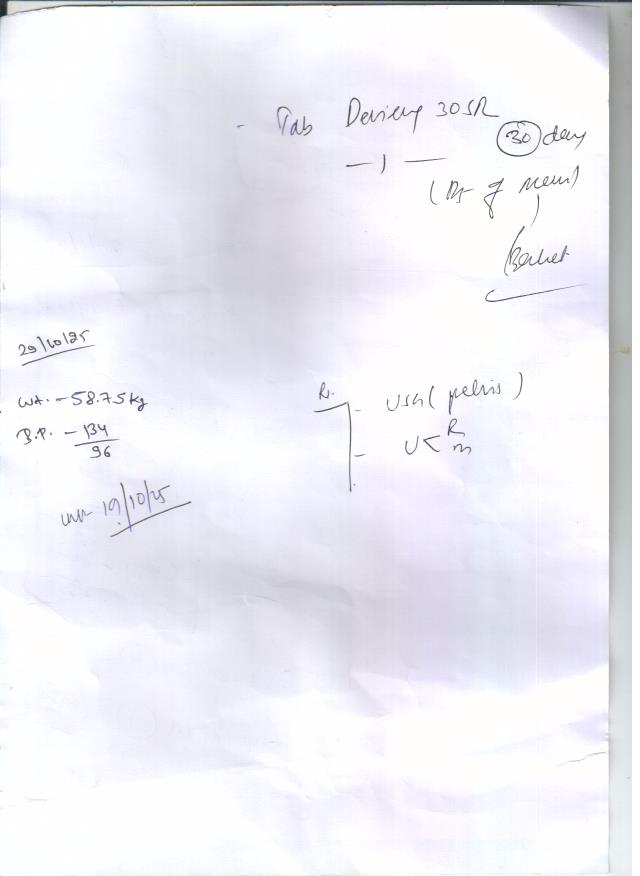 - Tab 30 SR
30 day
— 1 —
(D5 of mens)
29/10/25
Wt. - 58.75 kg
B.P. - 134/96
LMP 19/10/25
R.
- USG (pelvis)
- U < R
M